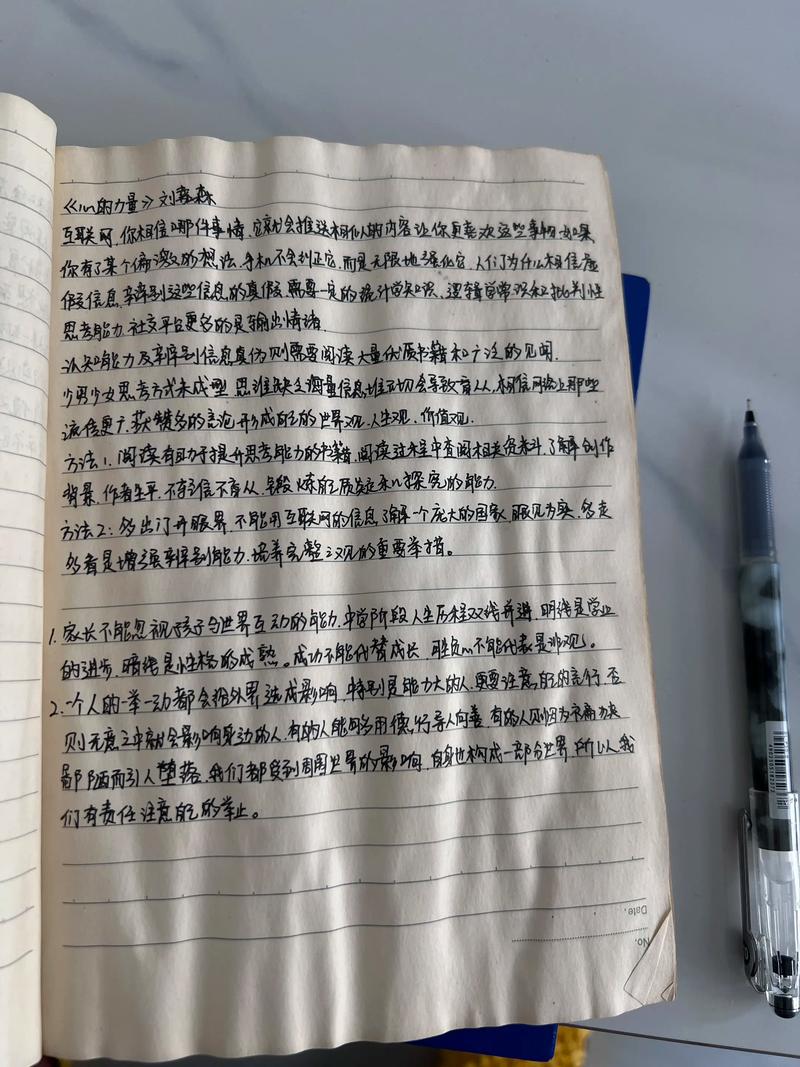 《心的力量》刘森森
互联网,你相信哪件事情,它就会推送相似的内容让你更喜欢这些事物.如果
你有了某个偏激的想法,手机不会纠正它,而是无限地强化它.人们为什么相信虚
假信息,辨别这些信息的真假,需要一定的统计学知识、逻辑学常识和批判性
思考能力.社交平台更多的是输出情绪.
认知能力及辨别信息真伪则需要阅读大量优质书籍和广泛的见闻.
少男少女思考方式未成型,思维缺乏,海量信息堆砌会导致盲从,相信网络上那些
流传更广,获赞多的言论,形成自己的世界观、人生观、价值观.
方法1、阅读有助于提升思考能力的书籍,阅读过程中查阅相关资料,了解创作
背景,作者生平,不轻信不盲从,锻炼自己质疑和探究的能力.
方法2:多出门开眼界,不能用互联网的信息了解一个庞大的国家,眼见为实,多走
多看是增强辨别能力,培养完整三观的重要举措。
1、家长不能忽视孩子与世界互动的能力,中学阶段人生历程双线并进,明线是学业
的进步,暗线是性格的成熟。成功不能代替成长,胜负心不能代表是非观。
2、一个人的一举一动都会给外界造成影响,特别是能力大的人,更要注意自己的言行,否
则无意之中就会影响身边的人,有的人能够多用德行导人向善,有的人则因为
鄙陋而引人堕落,我们都受到周围世界的影响,自身也构成一部分世界,所以,我
们有责任注意自己的举止。
Date.
No.